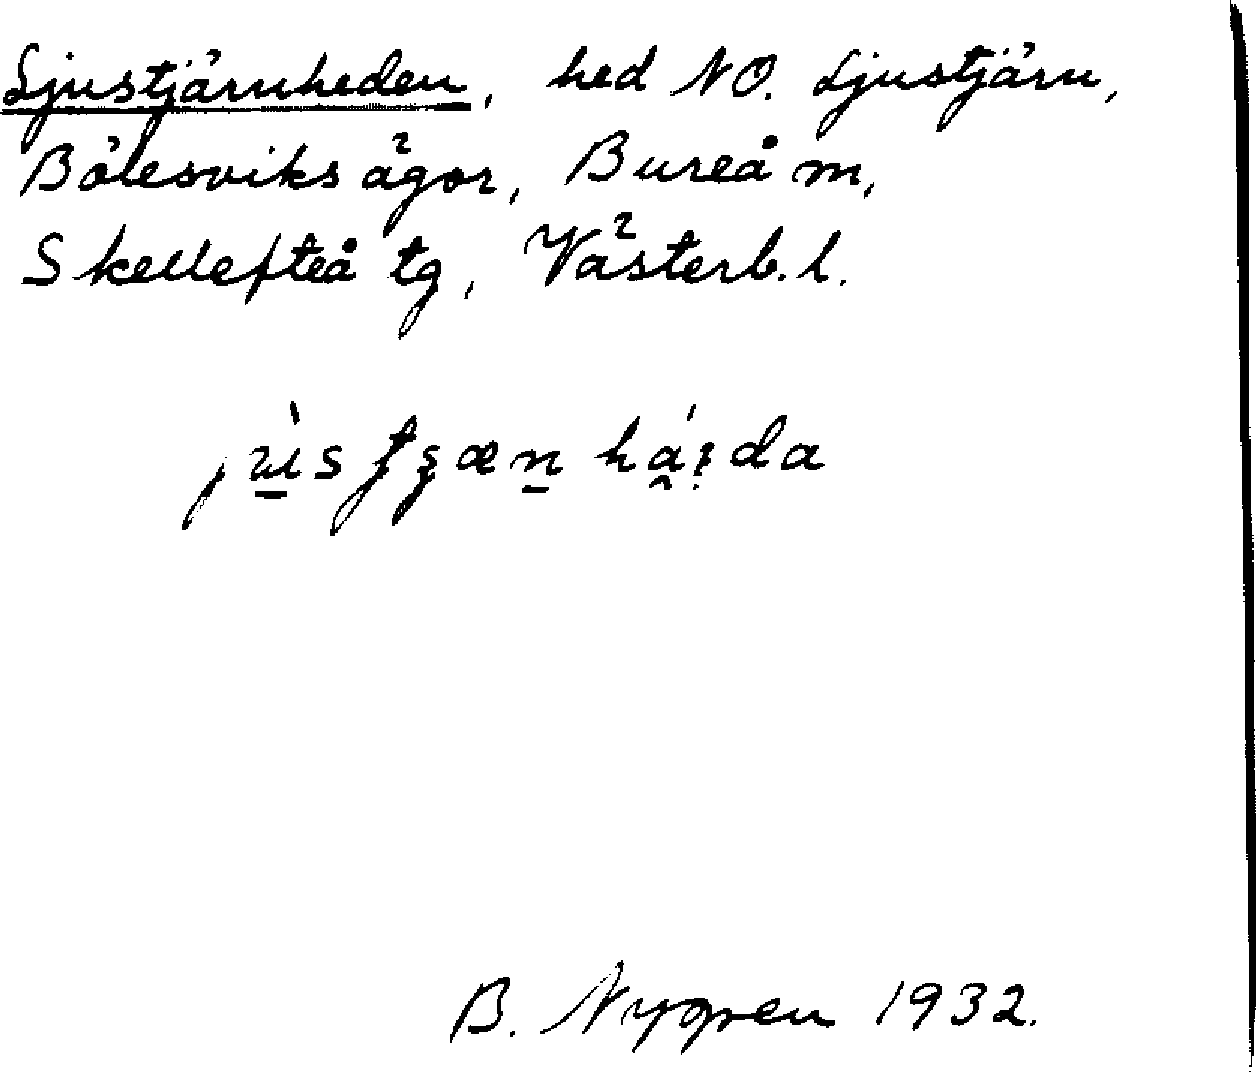 Ljustjärnheden, hed NO. Ljustjärn,
Bölesviks ägor, Bureå m,
Skellefteå tg, Västerb. l.
B. Nygren 1932.